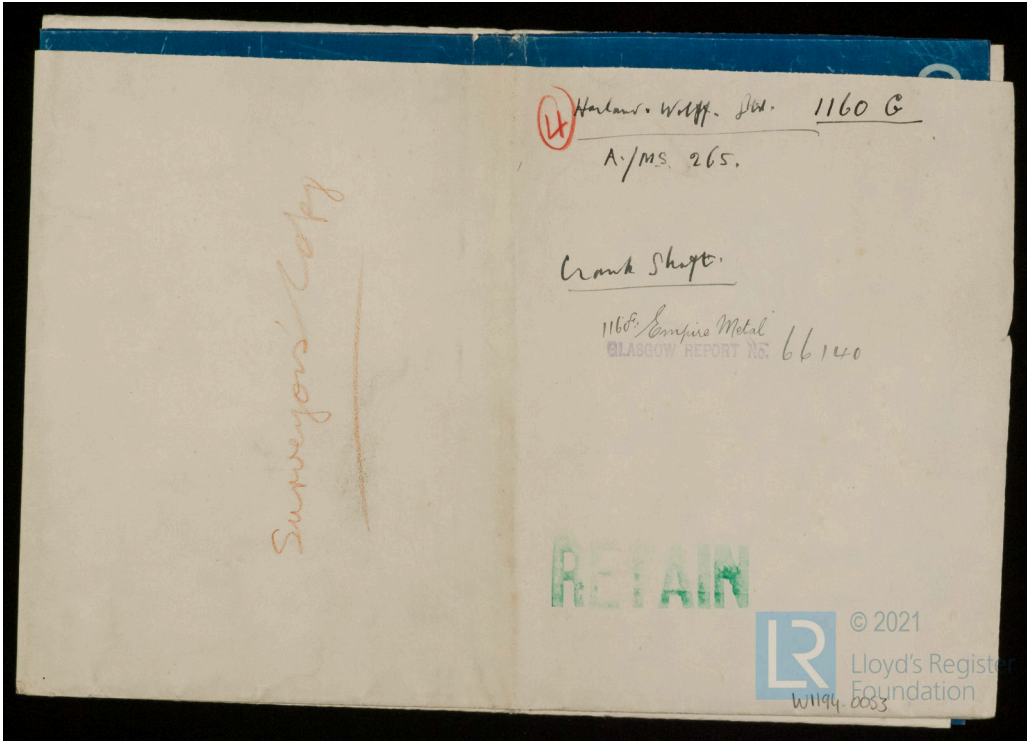 Surveyors' Copy
4
Harland & Wolff. Ltd. 1160 G
A./MS. 265.
Crank Shaft.
1160G. Empire Metal
GLASGOW REPORT No. 66140
RETAIN
LR
© 2021
Lloyd's Register
Foundation
W1194-0053